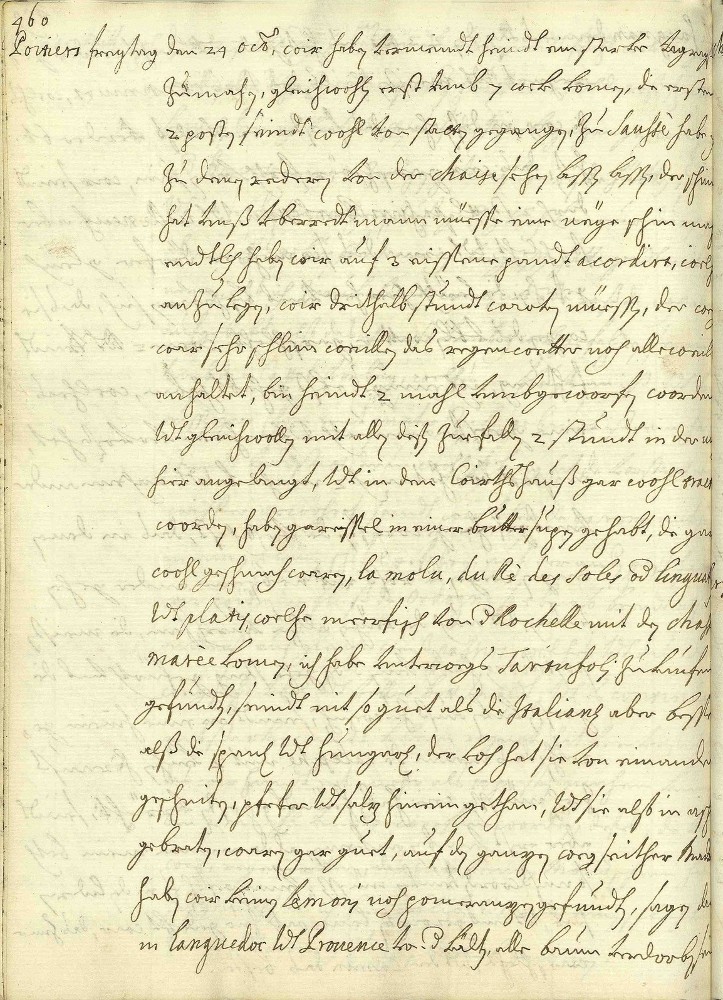 460
Poitiers freytag den 24 octb, wir haben vermeindt heindt ein starke tagrayß
zumahen, gleichwohl erst umb 7 work komen, die ersten
2 posten seindt wohl von staten gegangen, zu Sausse habe
zu denen redern von der chaise sehen lassen lassen, der schmi
hat unß yberredt mann müesse eine neüe schin ma
endtlich haben wir auf 3 eissene pandt acordirt, welche
anzulegen, wir drithalb stundt warten müessen, der weg
war sehr schlim weillen das regenwetter noch alleweill
anhaltet, bin heindt 2 mahl umbgeworfen worden
undt gleichwollen mit allen disen zuefallen 2 stundt in der
hier angelangt, undt in dem Wirthshauß gar wohl
worden, haben gareissel in einer butter supen gehabt, die gar
wohl geschmach waren, la molu, du Rè des Soles od lingua
undt platis, welche meerfisch von d Rochelle mit den chasse
marèe komen, ich habe unterwegs Tartufoli zu kaufen
gefundten, seindt nit so guet als die Italianischen aber besser
alß die spanischen undt hungarischen, der koch hat sie von einander
geschniten, pfefer undt salz hinein gethan, undt sie alß in
gebraten, waren gar guet, auf den ganzen weg seither
haben wir keine lemoni noch pomeranzen gefundten, sagen
in languedoc undt Prouence von d kältn, alle baum verdorben